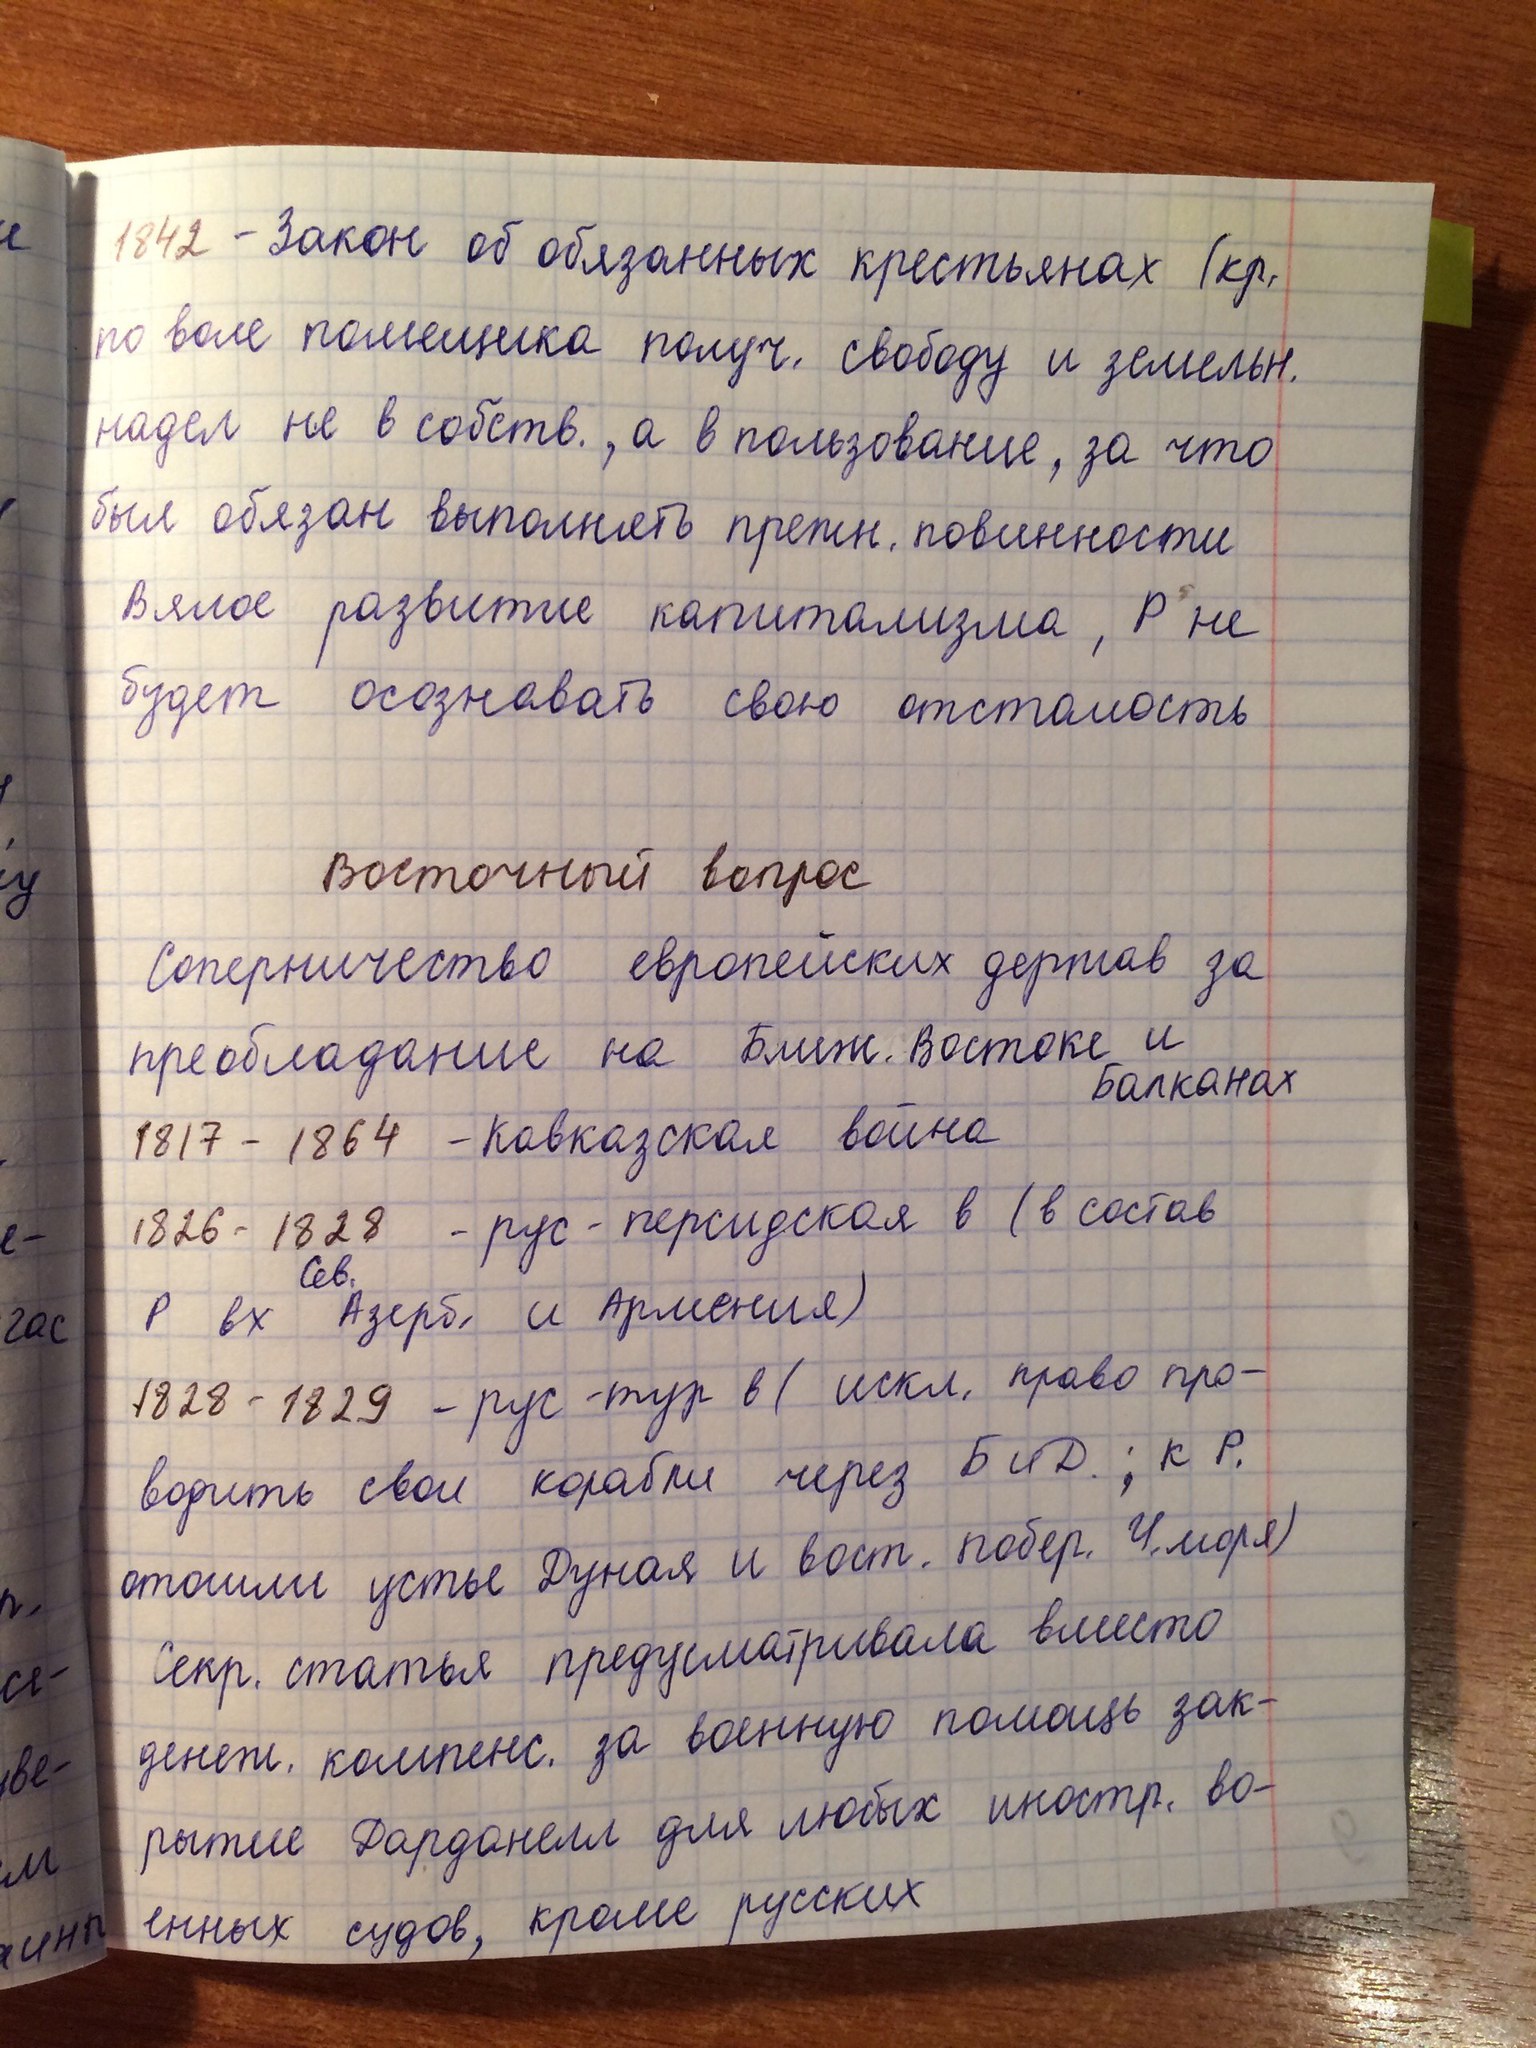 1842 - Закон об обязанных крестьянах (кр.
по воле помещика получ. свободу и земельн.
надел не в собств., а в пользование, за что
был обязан выполнять прежн. повинности
Вялое развитие капитализма, Р не
будет осознавать свою отсталость
Восточный вопрос
Соперничество европейских держав за
преобладание на Ближ. Востоке и
Балканах
1817 - 1864 - Кавказская война
1826 - 1828 - рус - персидская в (в состав
Сев.
Р вх Азерб. и Армения)
1828 - 1829 - рус - тур в ( искл. право про-
водить свои корабли через Б и Д. ; к Р.
отошли устье Дуная и вост. побер. Ч. моря)
Секр. статья предусматривала вместо
денеж. компенс. за военную помощь зак-
рытие Дарданелл для любых иностр. во-
енных судов, кроме русских